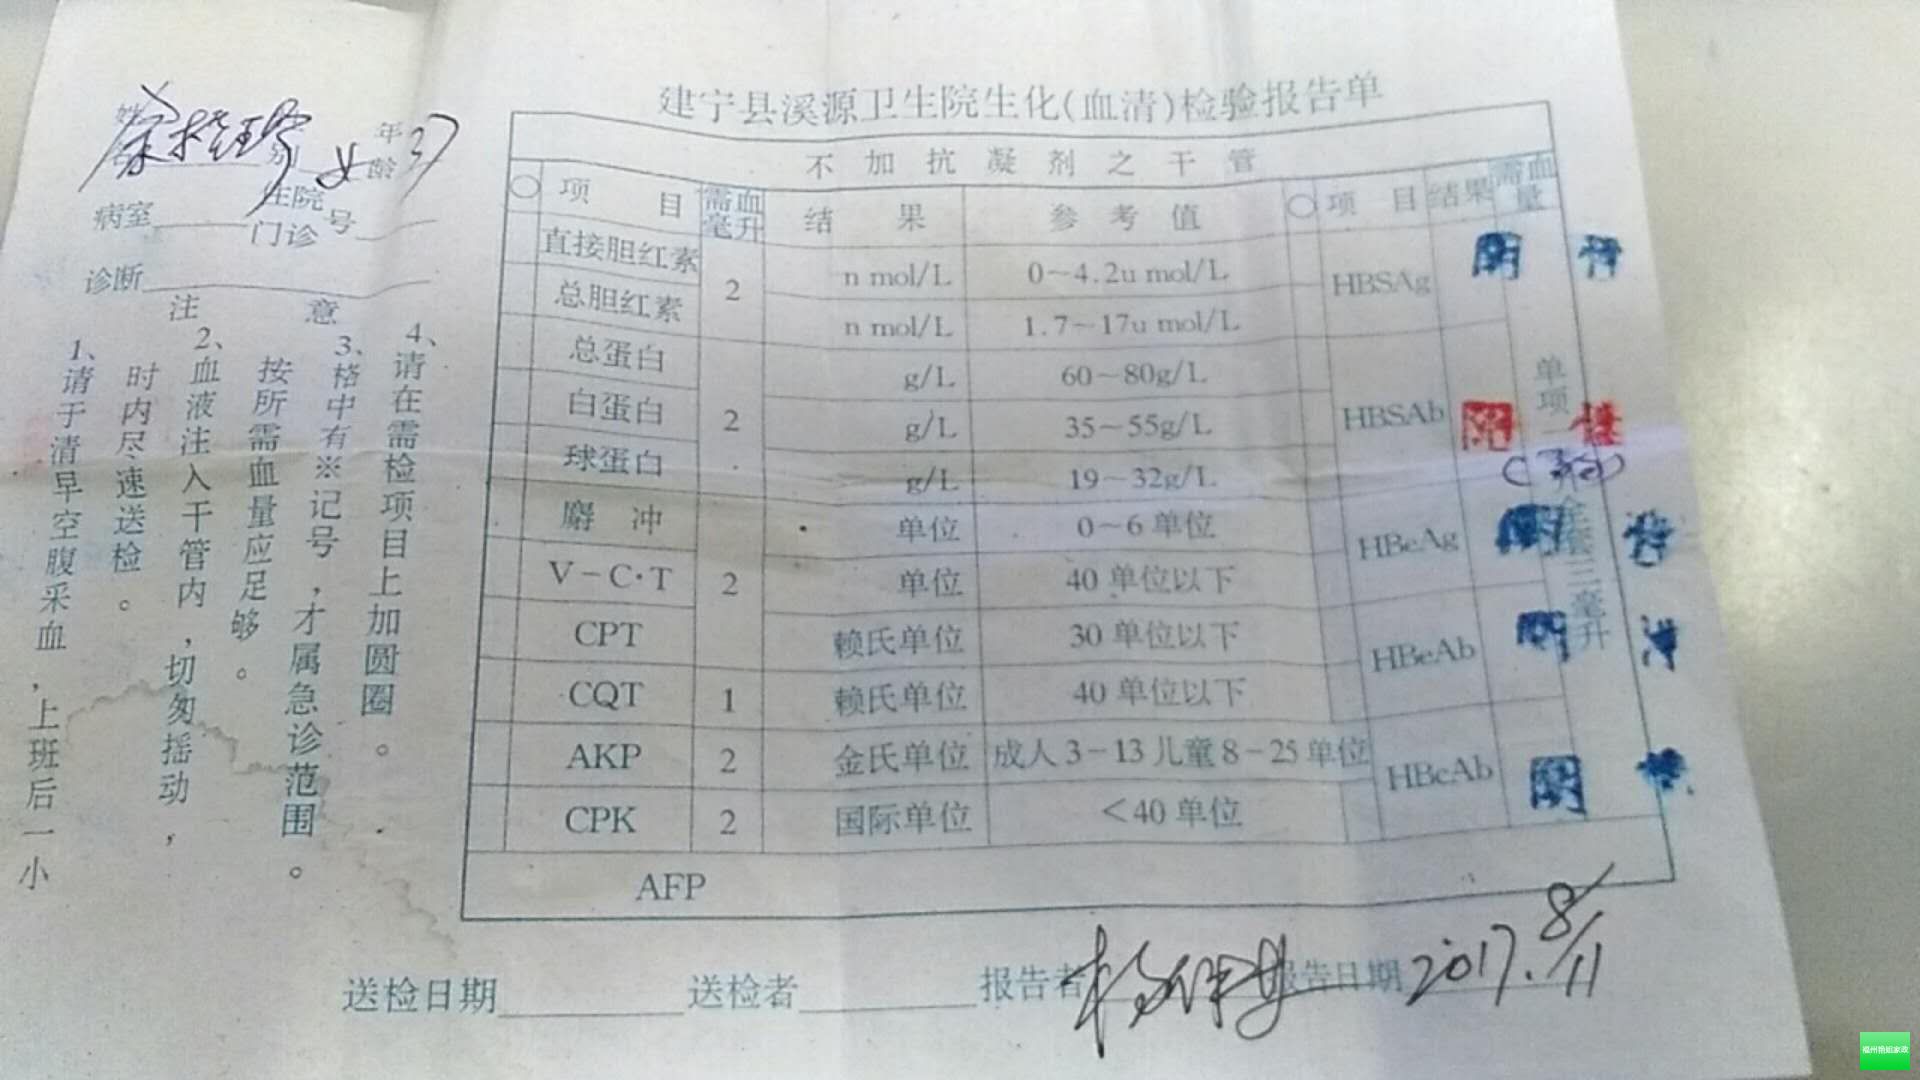 建宁县溪源卫生院生化(血清)检验报告单
姓名 性别 女 年龄 37
病室 住院门诊号
诊断
注意
1、请于清早空腹采血，上班后一小
时内尽速送检。
2、血液注入干管内，切匆摇动，
按所需血量应足够。
3、格中有※记号，才属急诊范围。
4、请在需检项目上加圆圈。
不加抗凝剂之干管
○ 项目 需血毫升 结果 参考值 ○ 项目 结果 需血量
直接胆红素 2 n mol/L 0～4.2u mol/L
总胆红素 n mol/L 1.7～17u mol/L
总蛋白 2 g/L 60～80g/L
白蛋白 g/L 35～55g/L
球蛋白 g/L 19～32g/L
麝冲 2 单位 0～6单位
V－C·T 单位 40单位以下
CPT 赖氏单位 30单位以下
CQT 1 赖氏单位 40单位以下
AKP 2 金氏单位 成人3－13儿童8－25单位
CPK 2 国际单位 ＜40单位
HBSAg 阴性
HBSAb 阳性
HBeAg 阴性
HBeAb 阴性
HBcAb 阴性
单项一 三毫升
AFP
送检日期 送检者 报告者 报告日期 2017.8/11
福州艳姐家政